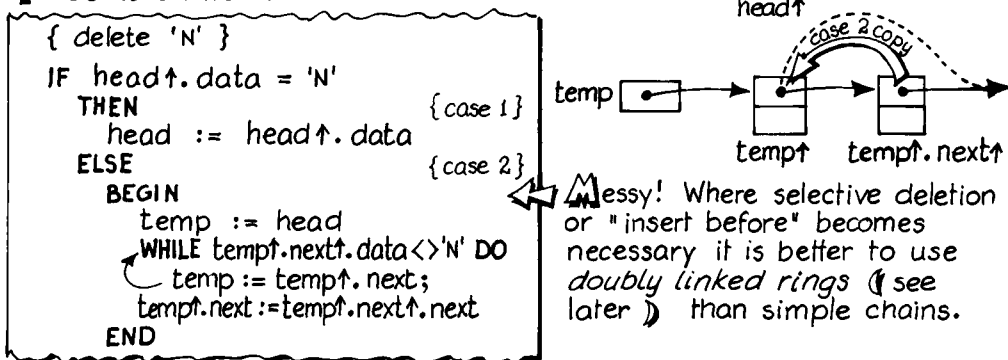 { delete 'N' }
IF head↑.data = 'N'
THEN {case 1}
head := head↑.data
ELSE {case 2}
BEGIN
temp := head
WHILE temp↑.next↑.data<>'N' DO
temp := temp↑.next;
temp↑.next:=temp↑.next↑.next
END
head↑
case 2 copy
temp
temp↑ temp↑.next↑
Messy! Where selective deletion
or "insert before" becomes
necessary it is better to use
doubly linked rings (see
later) than simple chains.